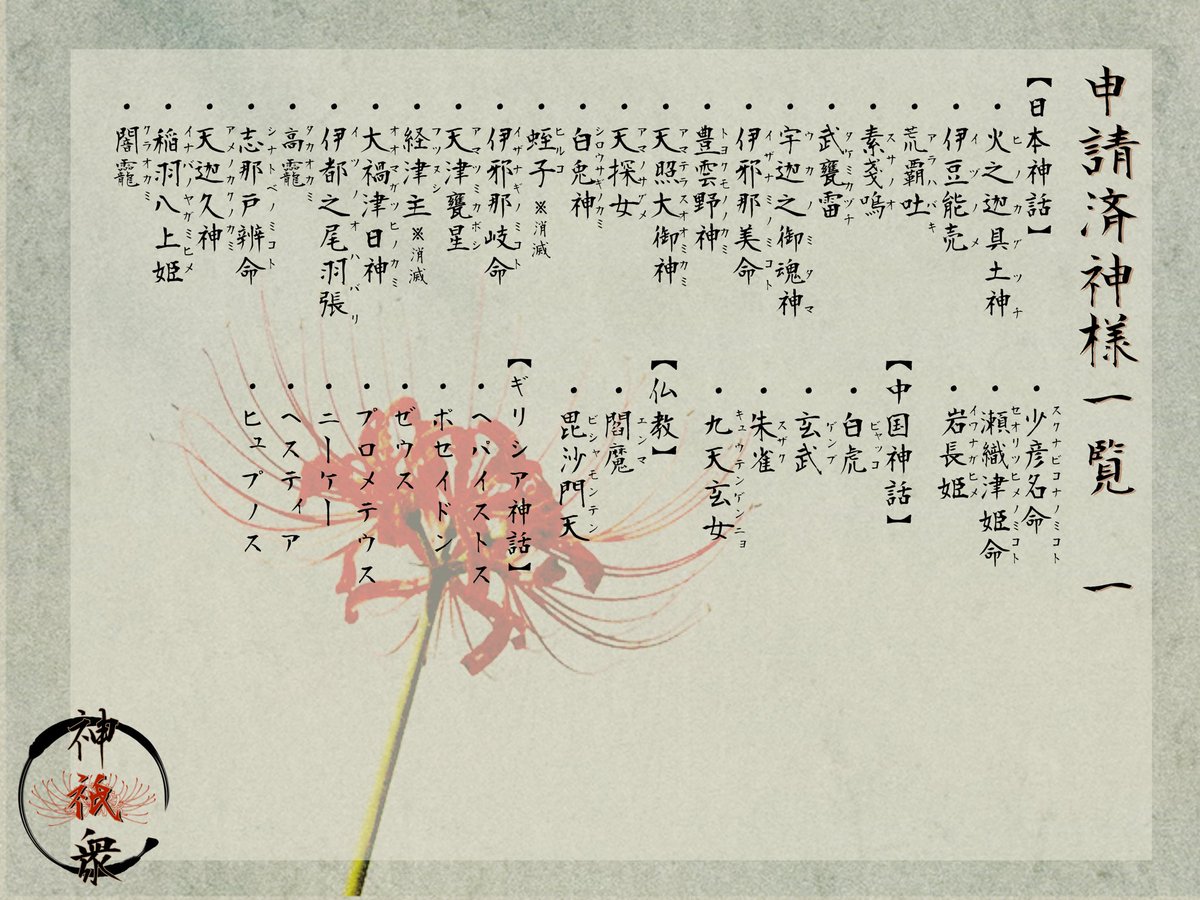 申請済神様一覧 一
【日本神話】
・火之迦具土神 ヒノカグツチ
・伊豆能売 イツノメ
・荒覇吐 アラハバキ
・素戔嗚 スサノオ
・武甕雷 タケミカヅチ
・宇迦之御魂神 ウカノミタマ
・伊邪那美命 イザナミノミコト
・豊雲野神 トヨクモノノカミ
・天照大御神 アマテラスオオカミ
・天探女 アマノサグメ
・白兎神 シロウサギカミ
・蛭子 ※消滅 ヒルコ
・伊邪那岐命 イザナギノミコト
・天津甕星 アマツミカボシ
・経津主 ※消滅 フツヌシ
・大禍津日神 オオマガツヒノカミ
・伊都之尾羽張 イツノオハバリ
・高龗 タカオカミ
・志那戸辨命 シナトベノミコト
・天迦久神 アメノカクノカミ
・稲羽八上姫 イナバノヤガミヒメ
・闇龗 クラオカミ
・少彦名命 スクナビコナノミコト
・瀬織津姫命 セオリツヒメノミコト
・岩長姫 イワナガヒメ
【中国神話】
・白虎 ビャッコ
・玄武 ゲンブ
・朱雀 スザク
・九天玄女 キュウテンゲンニョ
【仏教】
・閻魔 エンマ
・毘沙門天 ビシャモンテン
【ギリシア神話】
・ヘパイストス
・ポセイドン
・ゼウス
・プロメテウス
・ニーケー
・ヘスティア
・ヒュプノス
神祇衆